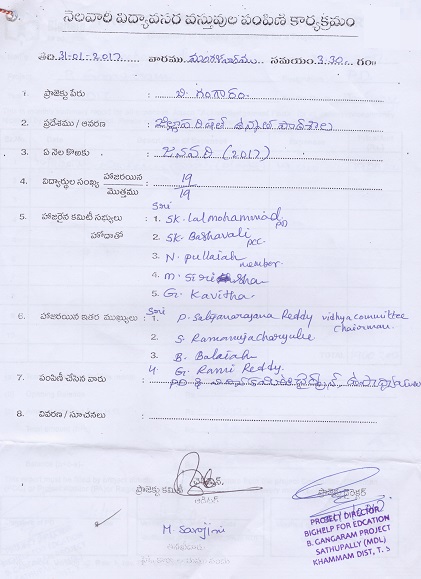 నెలవారి విద్యావసర వస్తువుల పంపిణి కార్యక్రమం
తేది 31-01-2017 వారము మంగళవారము సమయం 3.30 గం
1. ప్రాజెక్టు పేరు : బి. గంగారం.
2. ప్రదేశము / ఆవరణ : జిల్లా పరిషత్ ఉన్నత పాఠశాల
3. ఏ నెల కొఱకు : జనవరి (2017)
4. విద్యార్థుల సంఖ్య హాజరయిన / మొత్తము : 19 / 19
5. హాజరైన కమిటీ సభ్యులు : Sri 1. SK. Lalmohammad PD
హోదాతో 2. SK. Bashavali PCC.
3. N. pullaiah member.
4. M.
5. G. Kavitha.
6. హాజరయిన ఇతర ముఖ్యులు : Sri 1. P. Satyanarayana Reddy vidhya committee chairman.
2. S. Ramanujacharyulu
3. B. Balaiah
4. G. Rami Reddy.
7. పంపిణీ చేసిన వారు :
8. వివరణ / సూచనలు :
ప్రాజెక్టు కమిటీ
M. Sarojini
PROJECT DIRECTOR
BIGHELP FOR EDCATION
B. GANGARAM PROJECT
SATHUPALLY (MDL)
KHAMMAM DIST, T. S